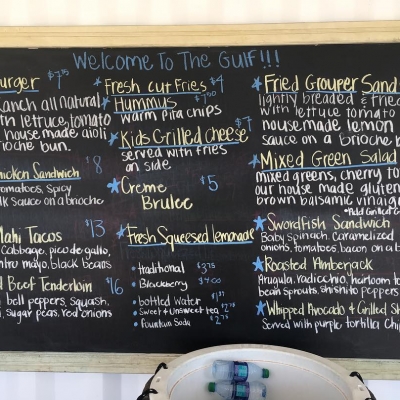 Welcome To The Gulf!!!
urger $7.95
Ranch all natural
th lettuce, tomato
house made aioli
rioche bun.
hicken Sandwich $8
omatoes, spicy
lk Sauce on a brioche
Mahi Tacos $13
Cabbage, pico de gallo,
ntro mayo, black beans
d Beef Tenderloin $16
bell peppers, squash,
i, sugar peas, red onions
Fresh cut Fries $4
Hummus $7.50
warm pita chips
Kids Grilled cheese $7
served with fries
on side
Creme $5
Brulee
Fresh Squeesed lemonade
• traditional $3.75
• Blackberry $4.00
• bottled Water
• Sweet & unsweet tea
• fountain Soda $2.75
Fried Grouper Sand
lightly breaded & fried
with lettuce tomato
housemade lemon
sauce on a brioche b
Mixed Green Salad
mixed greens, cherry to
our house made gluten
brown balsamic vinaig
Swordfish Sandwich
Baby Spinach, Caramelized
onions, tomatoes, bacon on a b
Roasted Amberjack
Arugula, radicchio, heirloom to
bean sprouts, shishito peppers
Whipped Avocado & Grilled Sh
Served with purple tortilla Chip